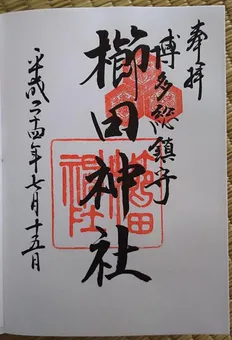 奉拝
博多総鎮守
櫛田神社
平成二十四年七月十五日
櫛田神社